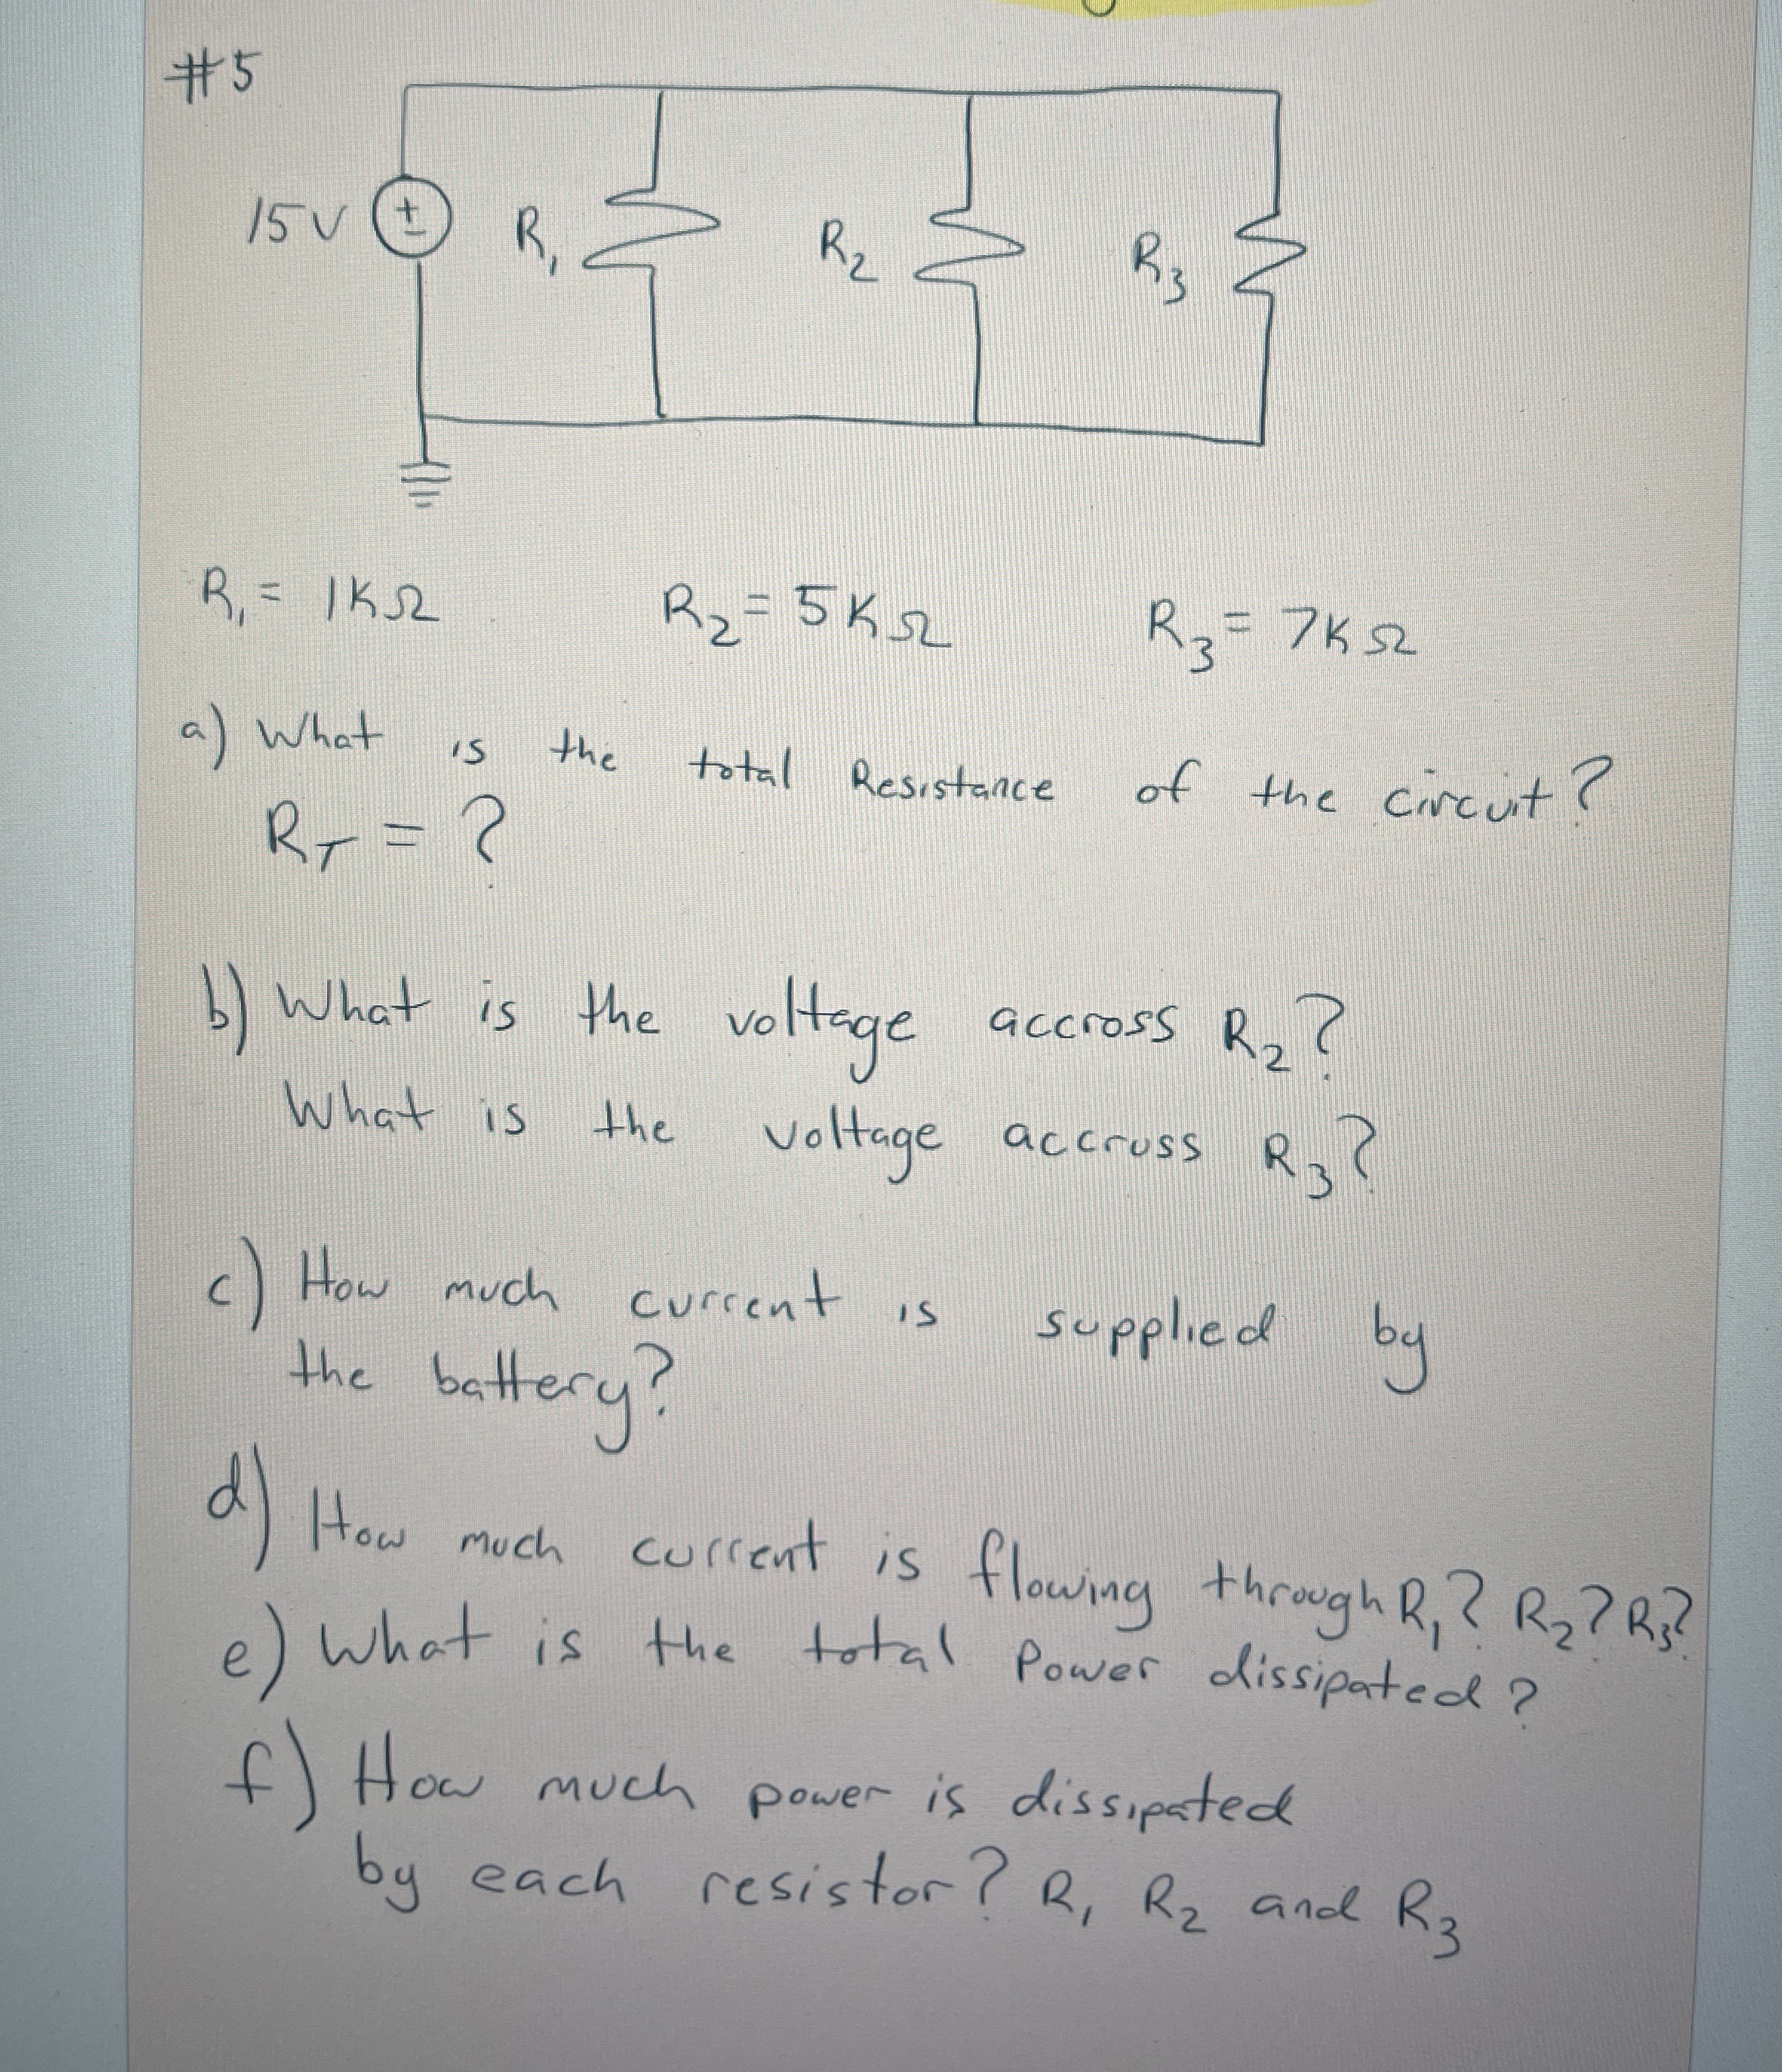 #5
15V + - R1 R2 R3
R1 = 1KΩ R2 = 5KΩ R3 = 7KΩ
a) What is the total Resistance of the circuit?
RT = ?
b) What is the voltage accross R2?
What is the voltage accruss R3?
c) How much current is supplied by
the battery?
d) How much current is flowing through R1? R2? R3?
e) What is the total Power dissipated?
f) How much power is dissipated
by each resistor? R1 R2 and R3